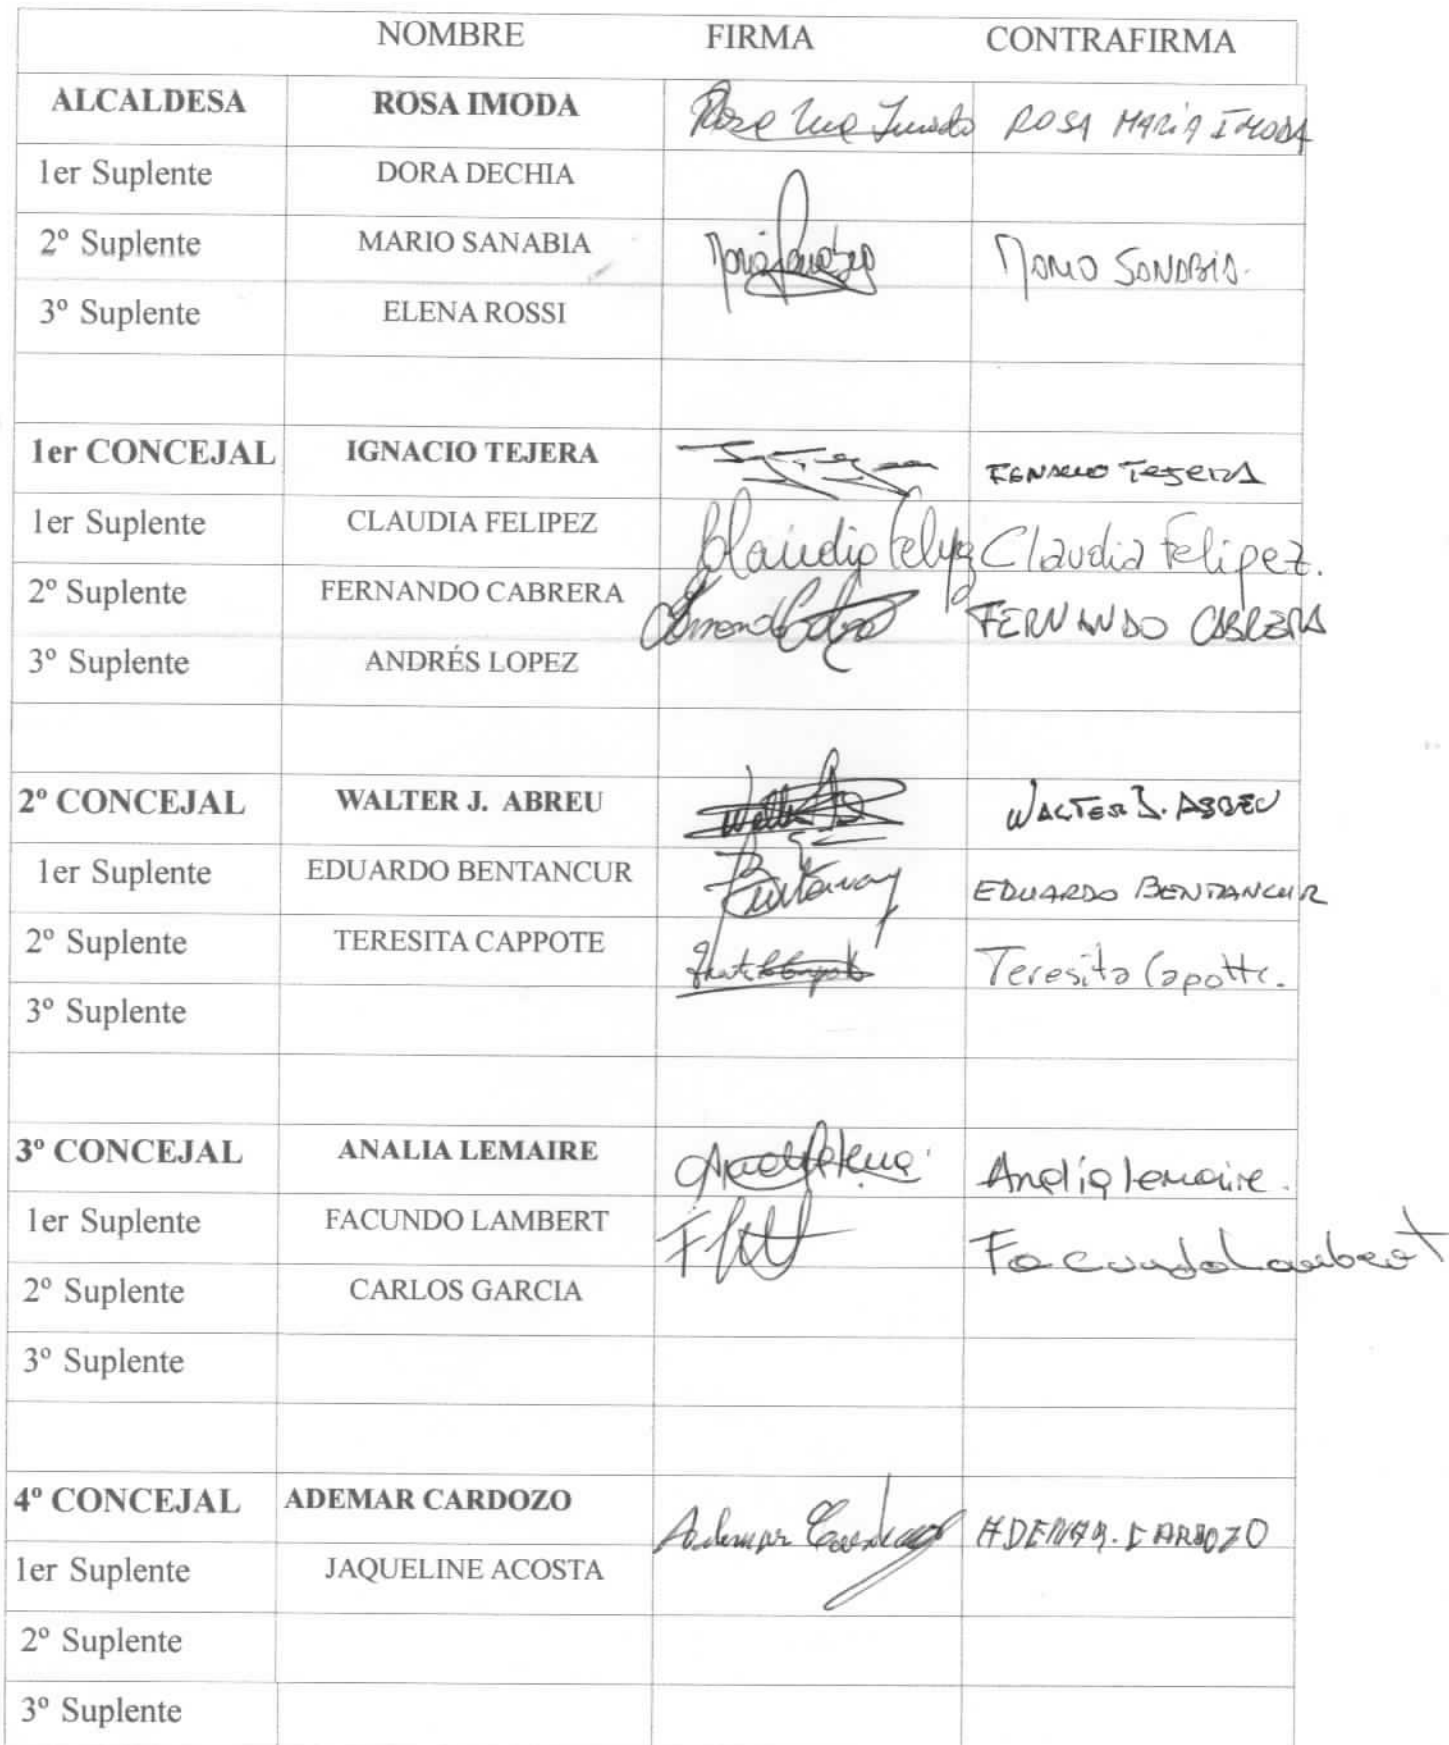 NOMBRE FIRMA CONTRAFIRMA
ALCALDESA ROSA IMODA ROSA MARIA IMODA
1er Suplente DORA DECHIA
2º Suplente MARIO SANABIA MARIO SANABIA.
3º Suplente ELENA ROSSI
1er CONCEJAL IGNACIO TEJERA IGNACIO TEJERA
1er Suplente CLAUDIA FELIPEZ Claudia Felipez Claudia Felipez.
2º Suplente FERNANDO CABRERA FERNANDO CABRERA
3º Suplente ANDRÉS LOPEZ
2º CONCEJAL WALTER J. ABREU WALTER J. ABREU
1er Suplente EDUARDO BENTANCUR EDUARDO BENTANCUR
2º Suplente TERESITA CAPPOTE Teresita Capotte.
3º Suplente
3º CONCEJAL ANALIA LEMAIRE Analia lemaire.
1er Suplente FACUNDO LAMBERT Facundo Lambert
2º Suplente CARLOS GARCIA
3º Suplente
4º CONCEJAL ADEMAR CARDOZO Ademar Cardozo ADEMAR. CARDOZO
1er Suplente JAQUELINE ACOSTA
2º Suplente
3º Suplente